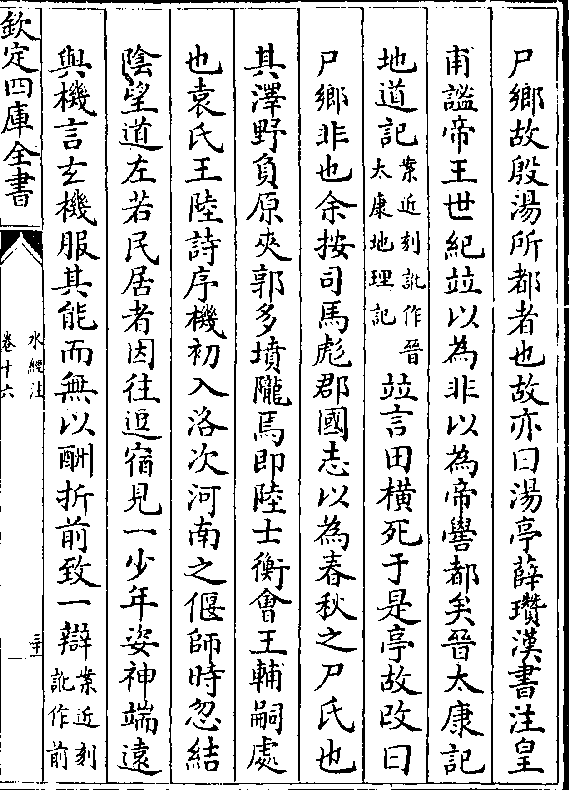 尸鄉故殷湯所都者也故亦曰湯亭薛瓚漢書注皇
甫謐帝王世紀竝以為非以為帝嚳都矣晉太康記
地道記案近刻訛作晉太康地理記竝言田橫死于是亭故改曰
尸鄉非也余按司馬彪郡國志以為春秋之尸氏也
其澤野負原夾郭多墳隴焉即陸士衡會王輔嗣處
也袁氏王陸詩序機初入洛次河南之偃師時忽結
陰望道左若民居者因往逗宿見一少年姿神端遠
與機言玄機服其能而無以酬折前致一辯案近刻訛作前
欽定四庫全書
水經注
卷十六